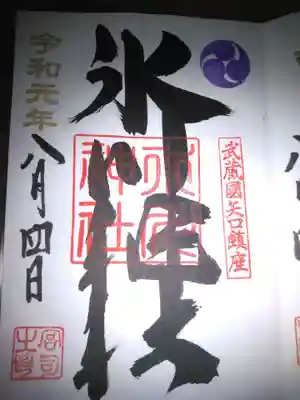 武蔵國矢口鎮座
氷川神社
氷川神社
令和元年
八月四日
宮司之印